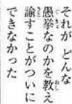 それが　どんな
愚挙なのかを教え
諭すことがついに
できなかった